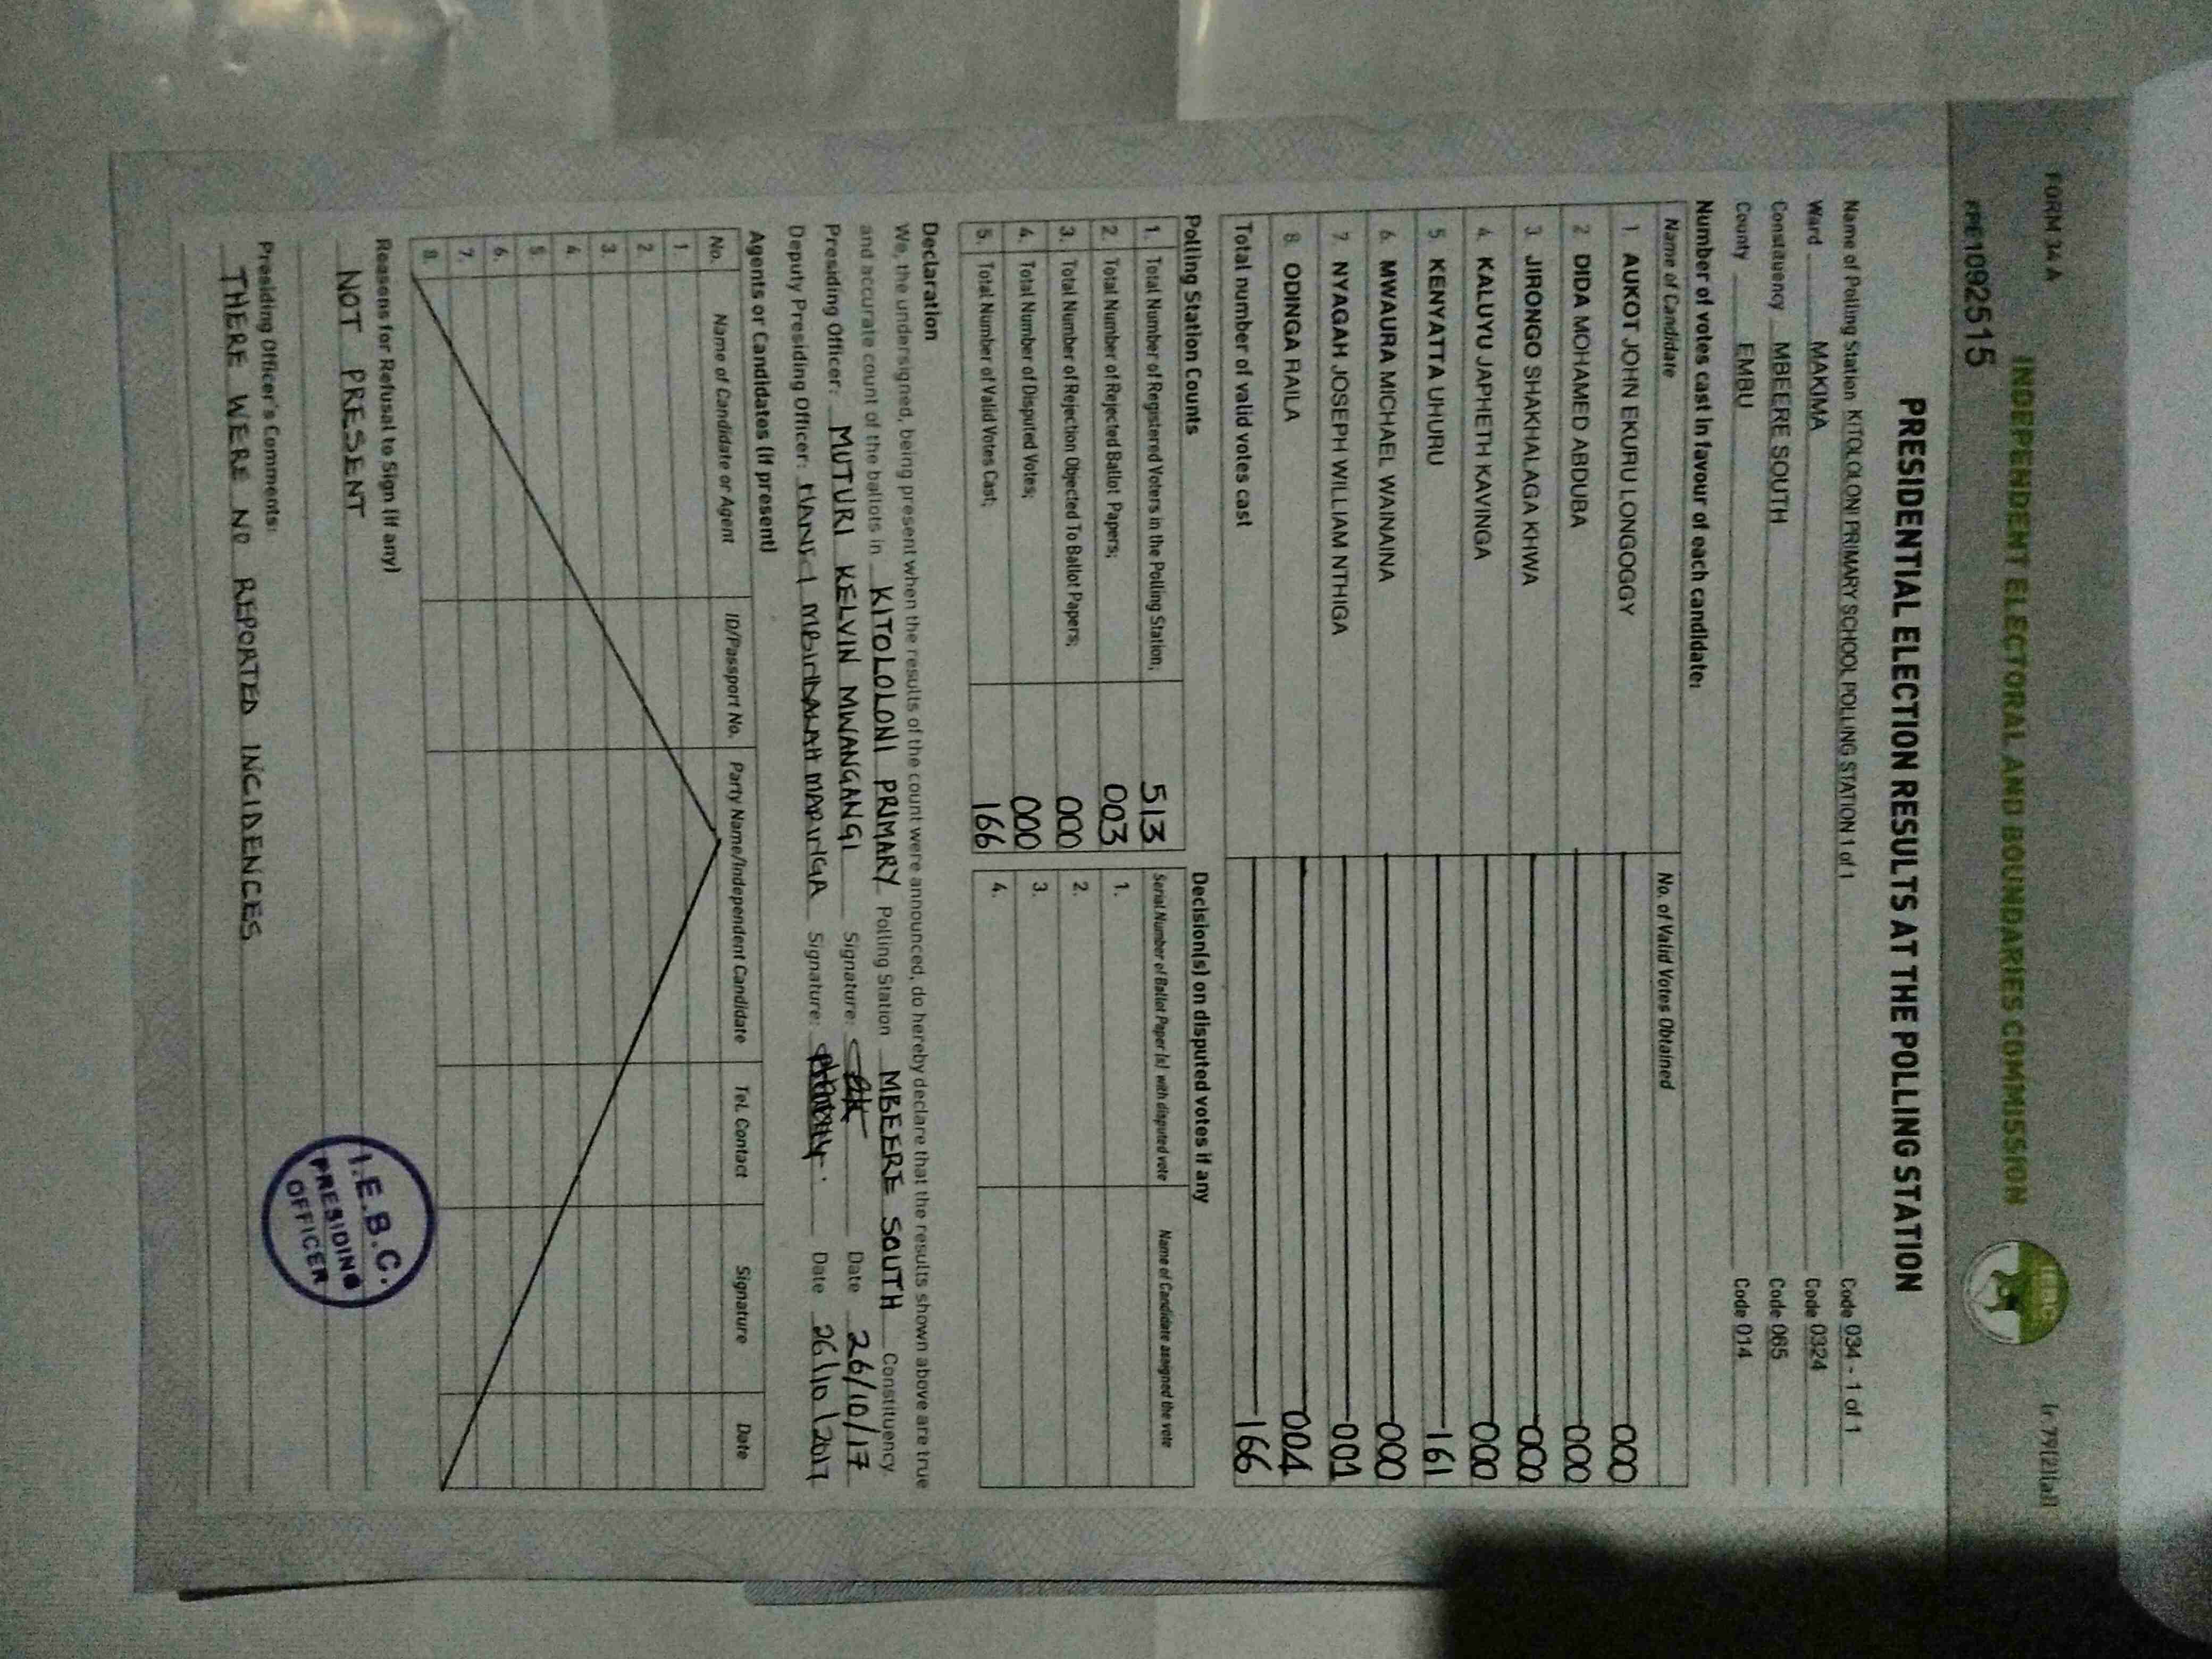 FORM 34 A
INDEPENDENT ELECTORAL AND BOUNDARIES COMMISSION
IEBC
(r 79(2)(a))
PRE1092515
PRESIDENTIAL ELECTION RESULTS AT THE POLLING STATION
Name of Polling Station KITOLOLONI PRIMARY SCHOOL POLLING STATION 1 of 1 Code 034 - 1 of 1
Ward MAKIMA Code 0324
Constituency MBEERE SOUTH Code 065
County EMBU Code 014
Number of votes cast in favour of each candidate:
Name of Candidate No. of Valid Votes Obtained
1. AUKOT JOHN EKURU LONGOGGY 000
2 DIDA MOHAMED ABDUBA 000
3. JIRONGO SHAKHALAGA KHWA 000
4. KALUYU JAPHETH KAVINGA 000
5 KENYATTA UHURU 161
6. MWAURA MICHAEL WAINAINA 000
7 NYAGAH JOSEPH WILLIAM NTHIGA 001
8 ODINGA RAILA 004
Total number of valid votes cast 166
Polling Station Counts
1. Total Number of Registered Voters in the Polling Station; 513
2. Total Number of Rejected Ballot Papers; 003
3. Total Number of Rejection Objected To Ballot Papers; 000
4. Total Number of Disputed Votes; 000
5. Total Number of Valid Votes Cast; 166
Decision(s) on disputed votes if any
Serial Number of Ballot Paper (s) with disputed vote Name of Candidate assigned the vote
1.
2.
3.
4.
Declaration
We, the undersigned, being present when the results of the count were announced, do hereby declare that the results shown above are true
and accurate count of the ballots in KITOLOLONI PRIMARY Polling Station MBEERE SOUTH Constituency
Presiding Officer: MUTURI KELVIN MWANGANGI Signature: Date 26/10/17
Deputy Presiding Officer: Signature: Date 26/10/2017
Agents or Candidates (if present)
No. Name of Candidate or Agent ID/Passport No. Party Name/Independent Candidate Tel. Contact Signature Date
1
2.
3.
4.
5
6.
7.
8.
Reasons for Refusal to Sign (if any)
NOT PRESENT
Presiding Officer's Comments:
THERE WERE NO REPORTED INCIDENCES
I.E.B.C.
PRESIDING
OFFICER